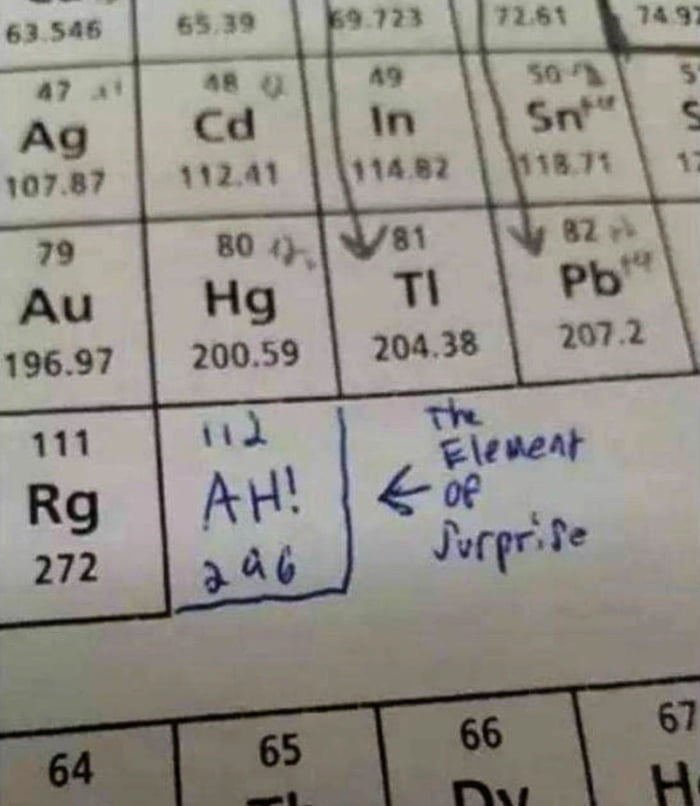 63.546 65.39 69.723 72.61 74.92
47 48 49 50
Ag Cd In Sn
107.87 112.41 114.82 118.71
79 80 81 82
Au Hg Tl Pb
196.97 200.59 204.38 207.2
111 112
Rg AH!
272 296
The
Element
← of
Surprise
64 65 66 67
Dy